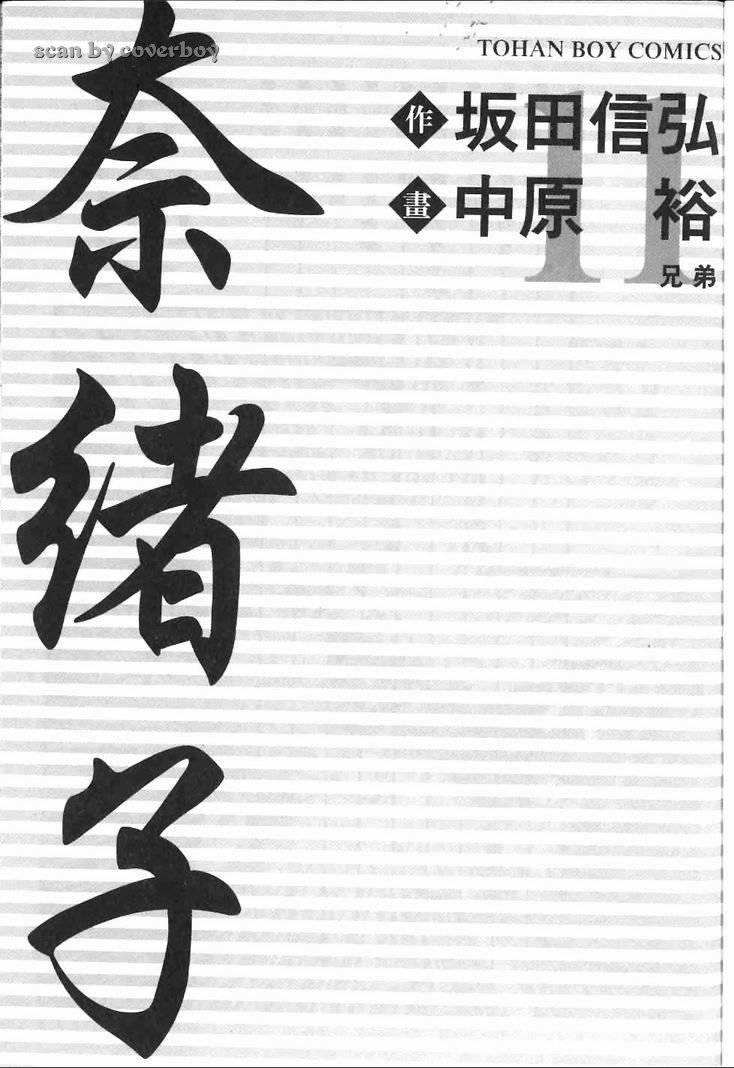 scan by coverboy
TOHAN BOY COMICS
作 坂田信弘
畫 中原 裕
11
兄弟
奈緒子